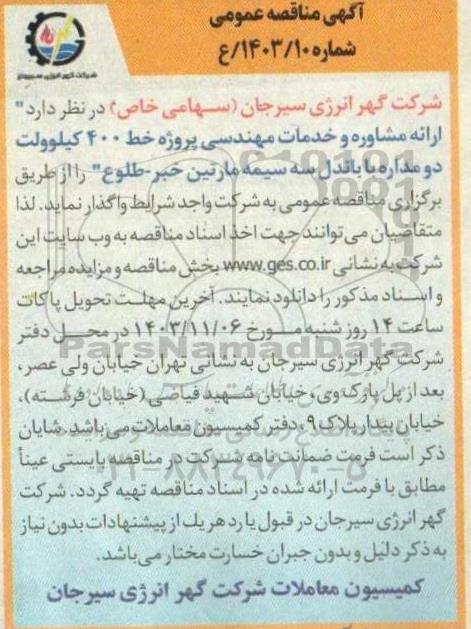 آگهی مناقصه عمومی
شماره ۱۴۰۳/۱۰/ع
شرکت گهر انرژی سیرجان
شرکت گهر انرژی سیرجان (سهامی خاص) در نظر دارد "
ارائه مشاوره و خدمات مهندسی پروژه خط ۴۰۰ کیلوولت
دو مداره با باندل سه سیمه مارتین خبر-طلوع" را از طریق
برگزاری مناقصه عمومی به شرکت واجد شرایط واگذار نماید. لذا
متقاضیان می توانند جهت اخذ اسناد مناقصه به وب سایت این
شرکت به نشانی www.ges.co.ir بخش مناقصه و مزایده مراجعه
و اسناد مذکور را دانلود نمایند. آخرین مهلت تحویل پاکات
ساعت ۱۴ روز شنبه مورخ ۱۴۰۳/۱۱/۰۶ در محل دفتر
شرکت گهر انرژی سیرجان به نشانی تهران خیابان ولی عصر،
بعد از پل پارک وی، خیابان شهید فیاضی (خیابان فرشته)،
خیابان بیدار پلاک ۹، دفتر کمیسیون معاملات می باشد. شایان
ذکر است فرمت ضمانت نامه شرکت در مناقصه بایستی عیناً
مطابق با فرمت ارائه شده در اسناد مناقصه تهیه گردد. شرکت
گهر انرژی سیرجان در قبول یا رد هر یک از پیشنهادات بدون نیاز
به ذکر دلیل و بدون جبران خسارت مختار می باشد.
کمیسیون معاملات شرکت گهر انرژی سیرجان
ParsNamadData
۰۲۱-۸۸۳۴۹۶۷۰-۵